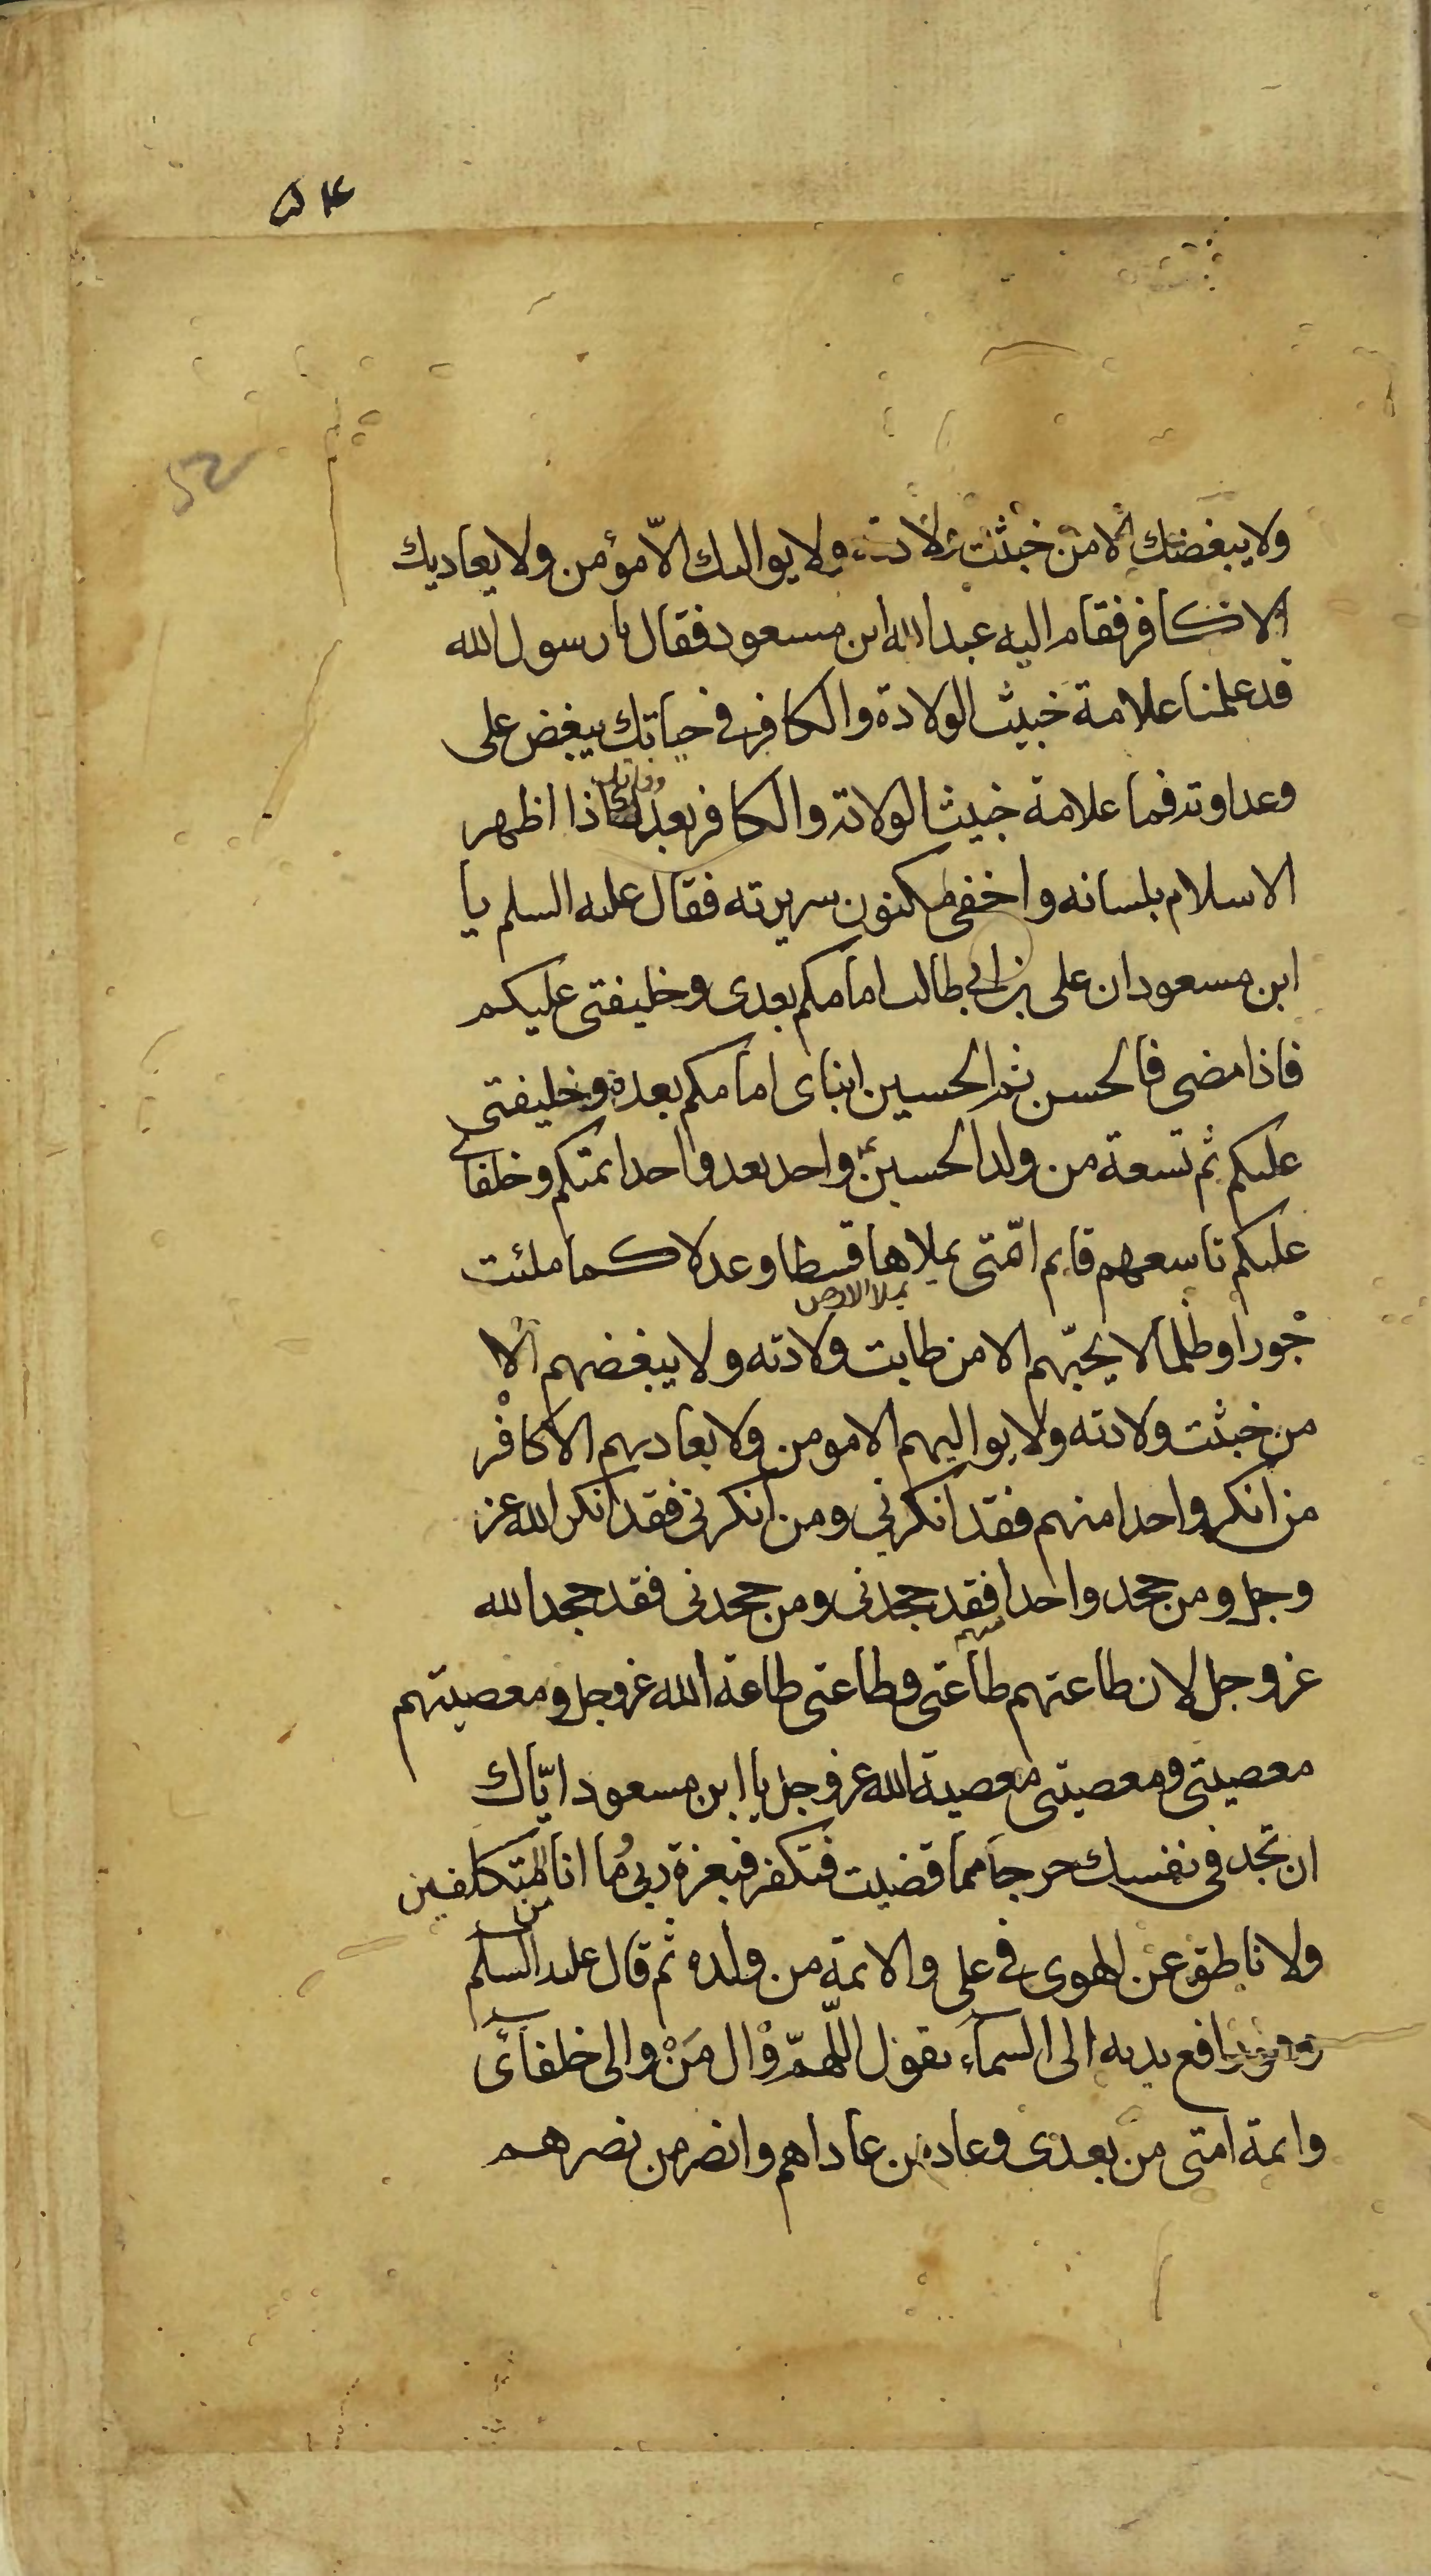 ٥٤
52
ولا يبغضك الا من خبثت ولادته ولا يواليك الّا مؤمن ولا يعاديك
الا كافر فقام اليه عبد الله ابن مسعود فقال يا رسول الله
قد علمنا علامة خبيث الولادة والكافر في حياتك ببغض على
وعداوته فما علامة خبيث الولادة والكافر بعد وفاتك اذا اظهر
الاسلام بلسانه واخفى مكنون سريرته فقال عليه السلم يا
ابن مسعود ان على بن ابي طالب امامكم بعدى وخليفتى عليكم
فاذا مضى فالحسن ثم الحسين ابناى امامكم بعده وخليفتى
عليكم ثم تسعة من ولد الحسين واحد بعد واحد ائمتكم وخلفائى
عليكم تاسعهم قايم امّتى يملاها قسطا وعدلا كما ملئت
يملا الارض
جورا وظلما لا يحبّهم الا من طابت ولادته ولا يبغضهم الا
من خبثت ولادته ولا يواليهم الا مومن ولا يعاديهم الا كافر
من انكر واحدا منهم فقد انكرني ومن انكرنى فقد انكر الله عز
وجل ومن جحد واحدا منهم فقد جحدنى ومن جحدنى فقد جحد الله
عز وجل لان طاعتهم طاعتى وطاعتى طاعة الله عز وجل ومعصيتهم
معصيتى ومعصيتى معصية الله عز وجل يا ابن مسعود ايّاك
ان تجد فى نفسك حرجا مما قضيت فتكفر فبعزة ربى ما انا من المتكلفين
ولا ناطق عن الهوى في على والائمة من ولده ثم قال عليه السلم
وهو رافع يديه الى السماء يقول اللّهمّ وال مَنْ والى خلفائى
وائمة امتى من بعدى وعاد من عاداهم وانصر من نصرهم